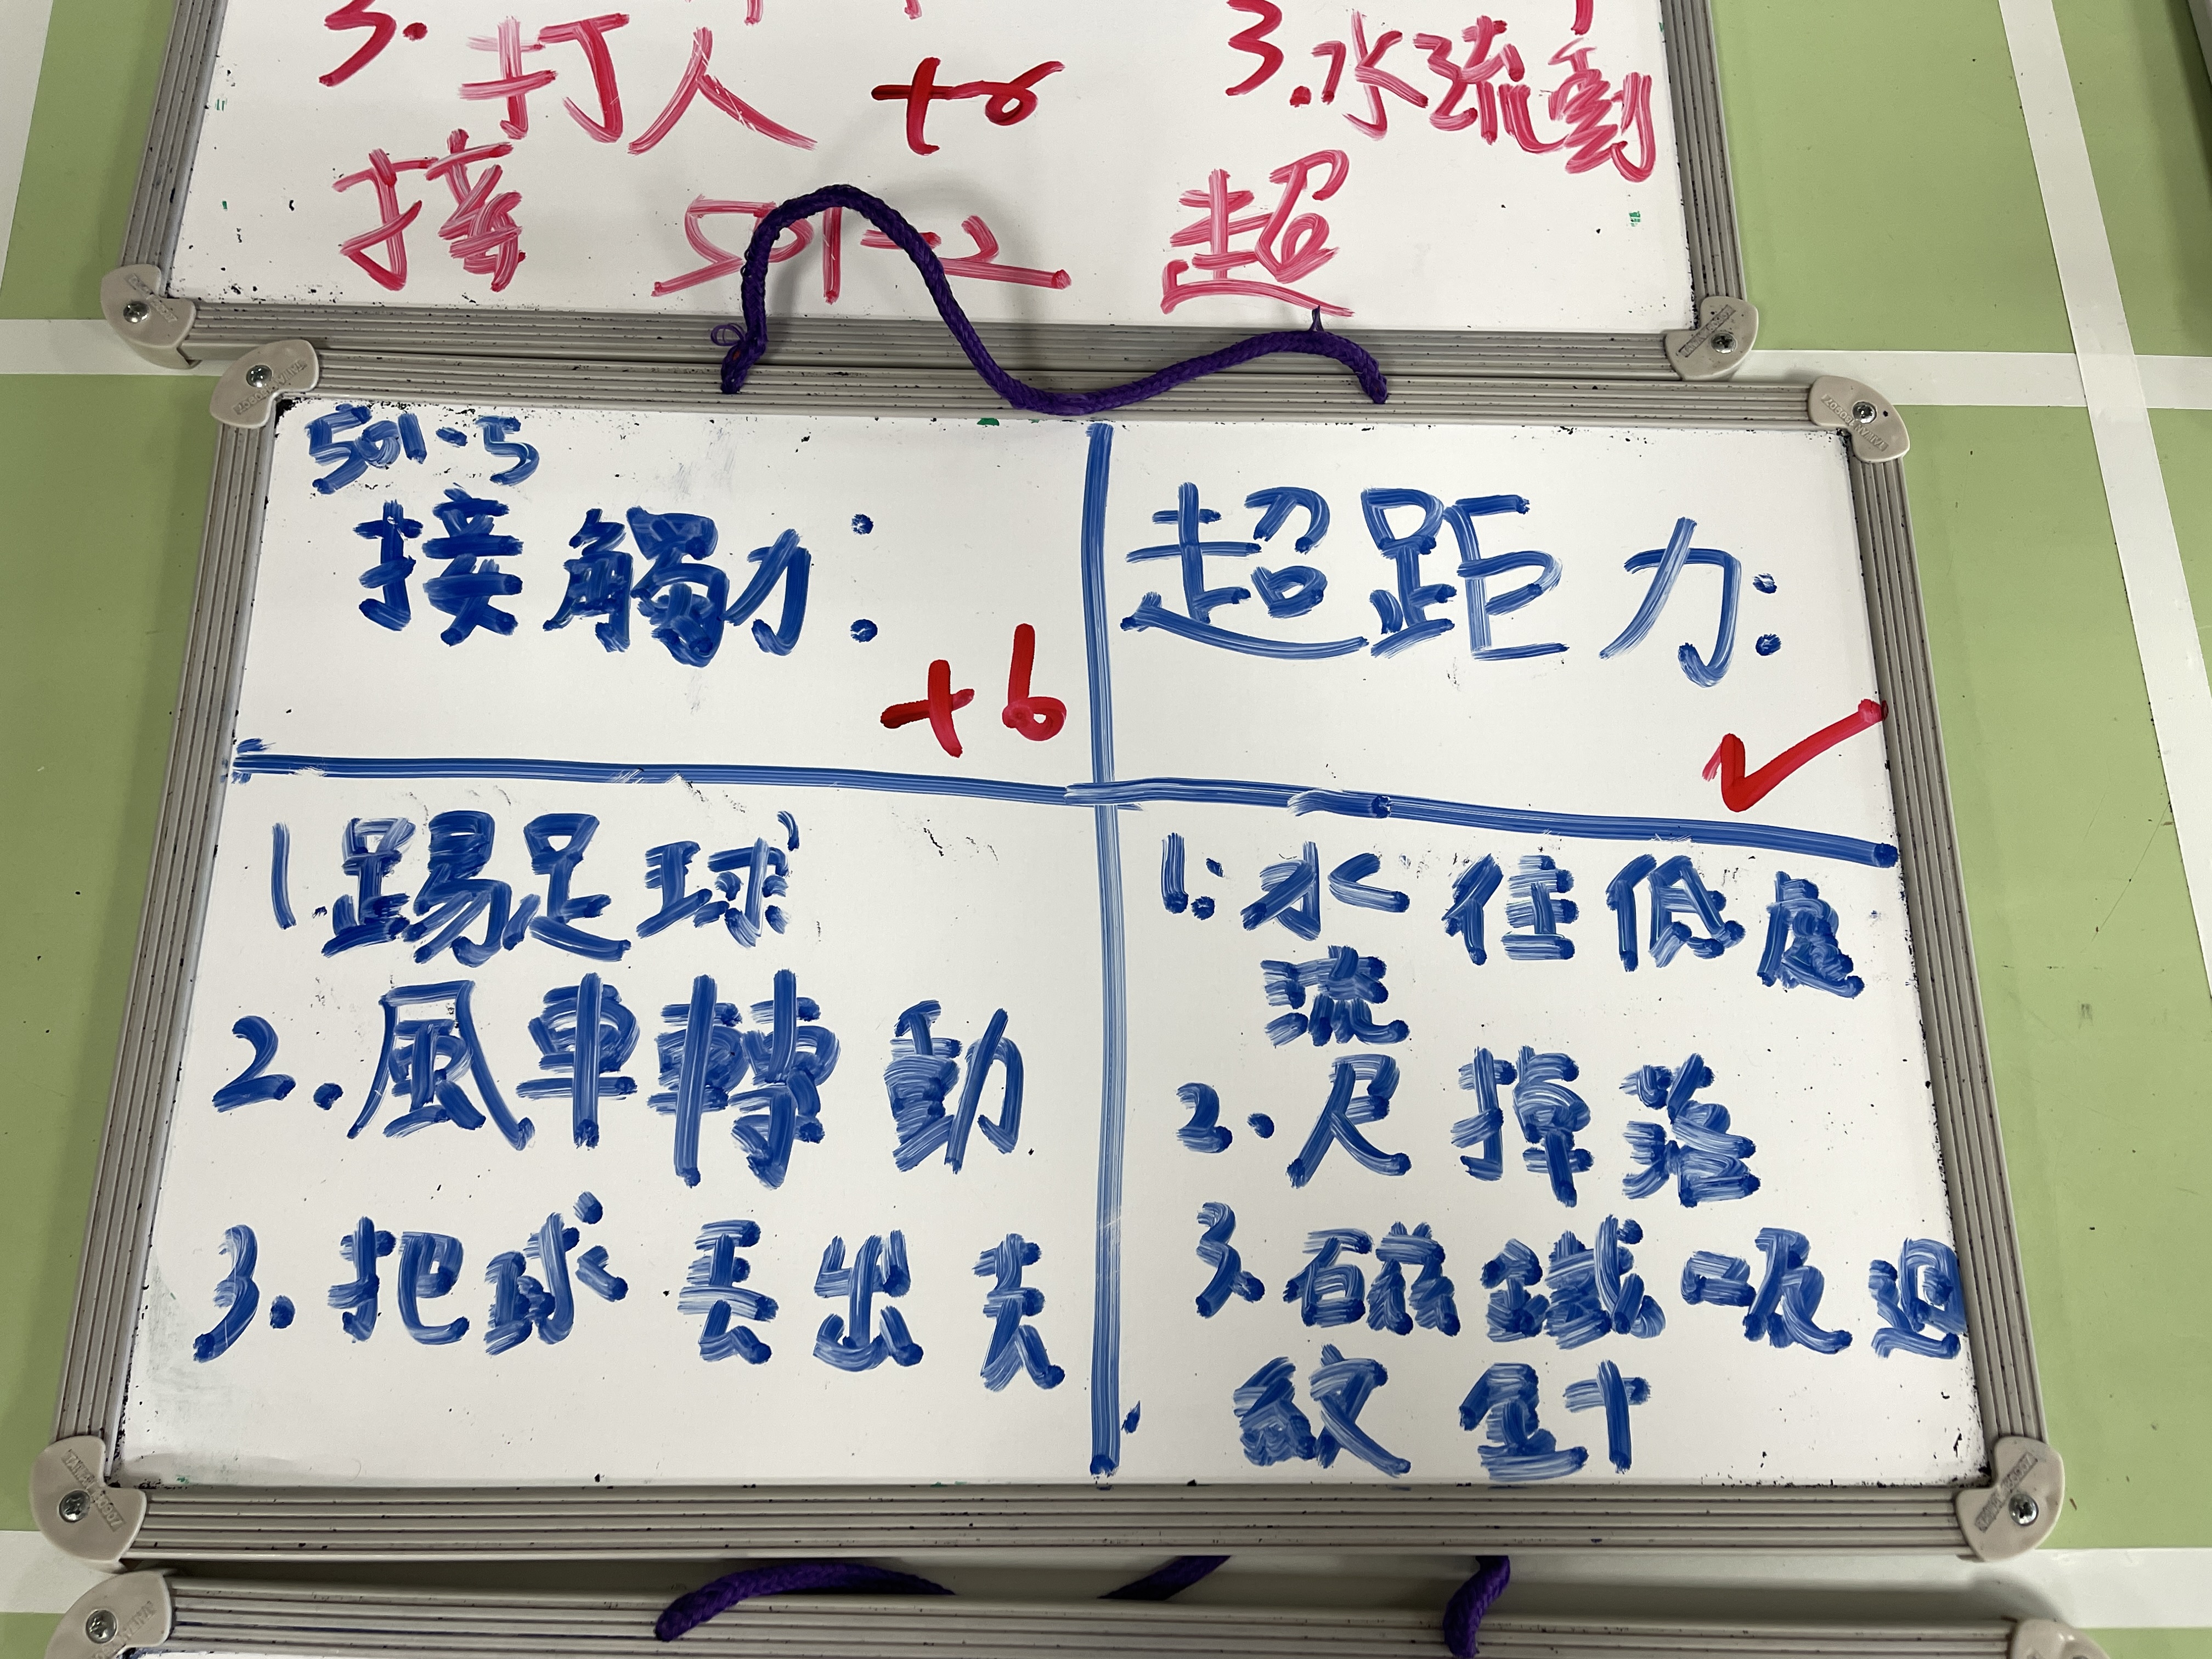 3. 打人 +6
接 501-2
3. 水流動
超
501-5
接觸力:
+6
超距力:
1.踢足球
2.風車轉動
3.把球丟出去
1.水往低處
流
2.尺掉落
3.磁鐵吸迴
紋針